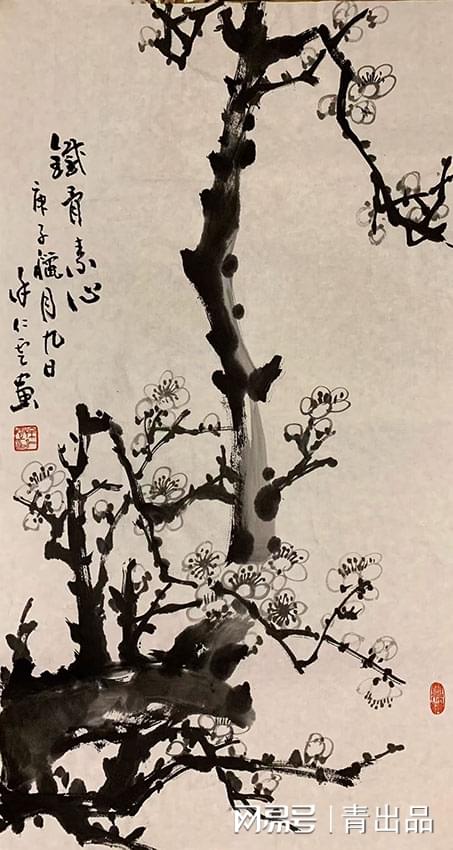 鐵骨素心
庚子臘月九日
仁雲畫
网易号 | 青出品